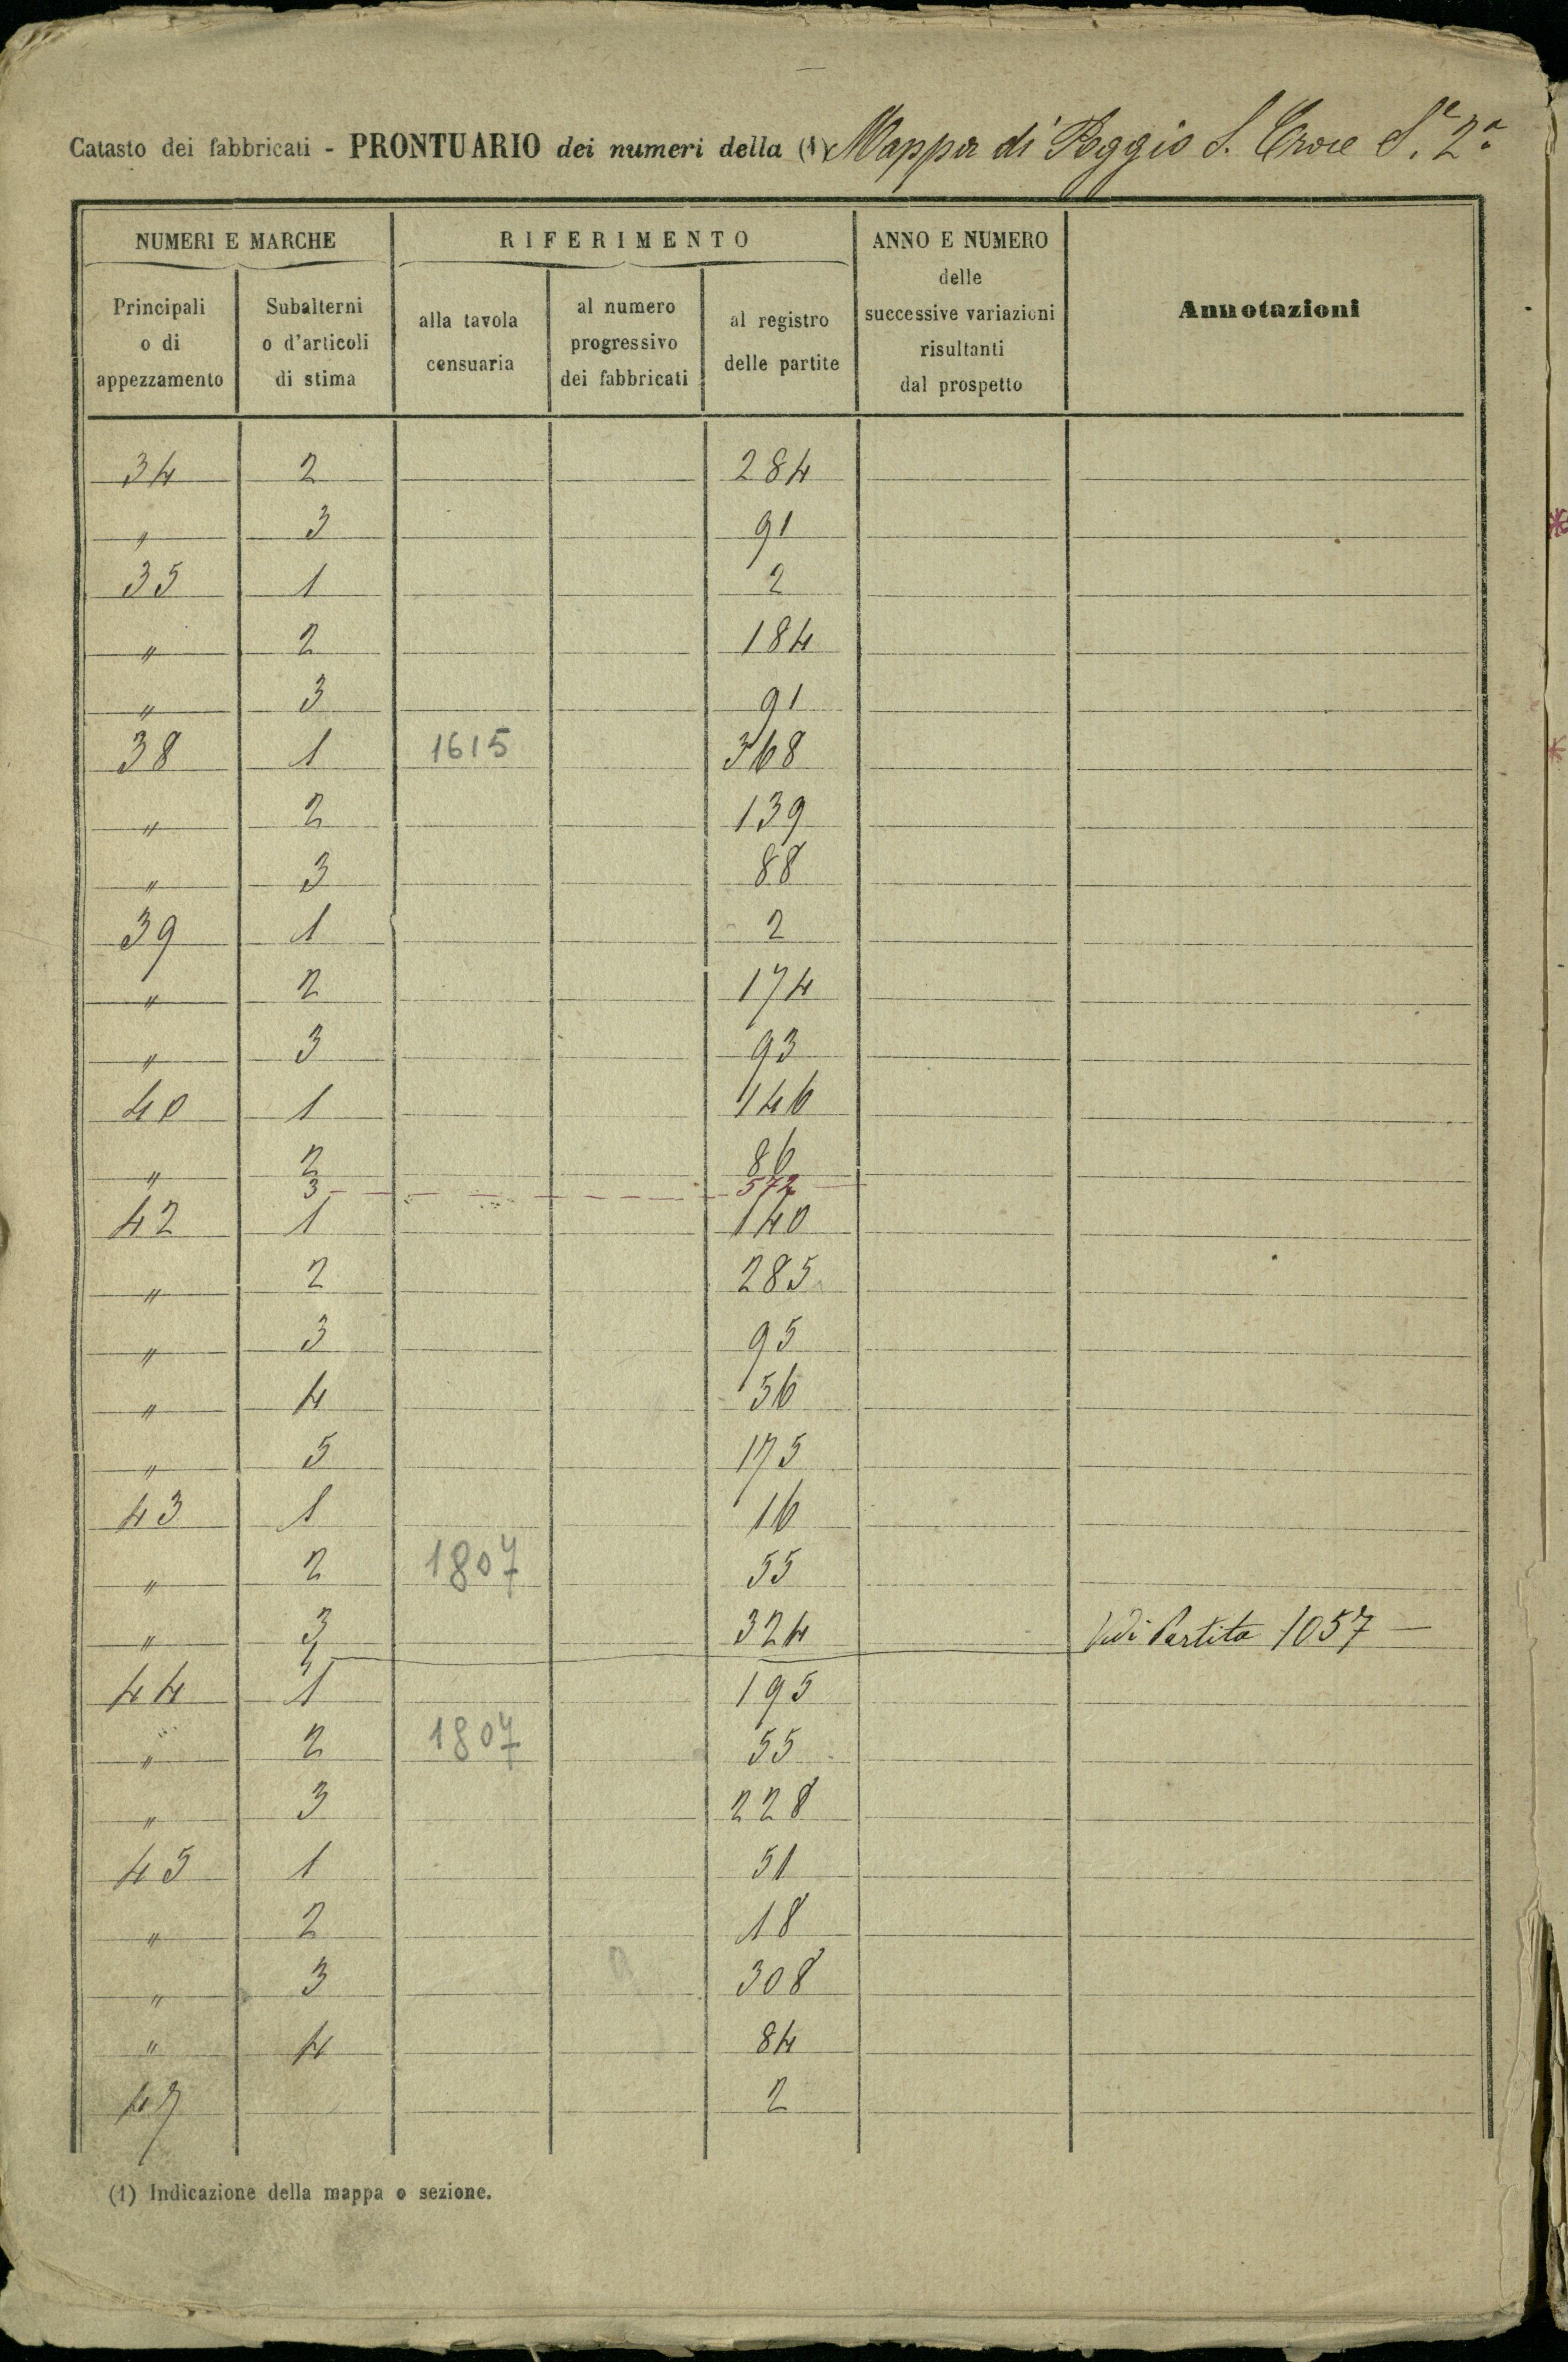 Catasto dei fabbricati - PRONTUARIO dei numeri della (1) Mappa di Poggio S. Croce S.e 2.a
NUMERI E MARCHE
RIFERIMENTO
ANNO E NUMERO delle successive variazioni risultanti dal prospetto
Annotazioni
Principali o di appezzamento
Subalterni o d'articoli di stima
alla tavola censuaria
al numero progressivo dei fabbricati
al registro delle partite
34 2 284
" 3 91
35 1 2
" 2 184
" 3 91
38 1 1615 368
" 2 139
" 3 88
39 1 2
" 2 174
" 3 93
40 1 146
" 2 86
3 572
42 1 140
" 2 285
" 3 95
" 4 56
" 5 175
43 1 16
" 2 1807 55
" 3 324
4 Vedi Partita 1057
44 1 195
" 2 1807 55
" 3 228
45 1 51
" 2 18
" 3 308
" 4 84
47 2
(1) Indicazione della mappa o sezione.